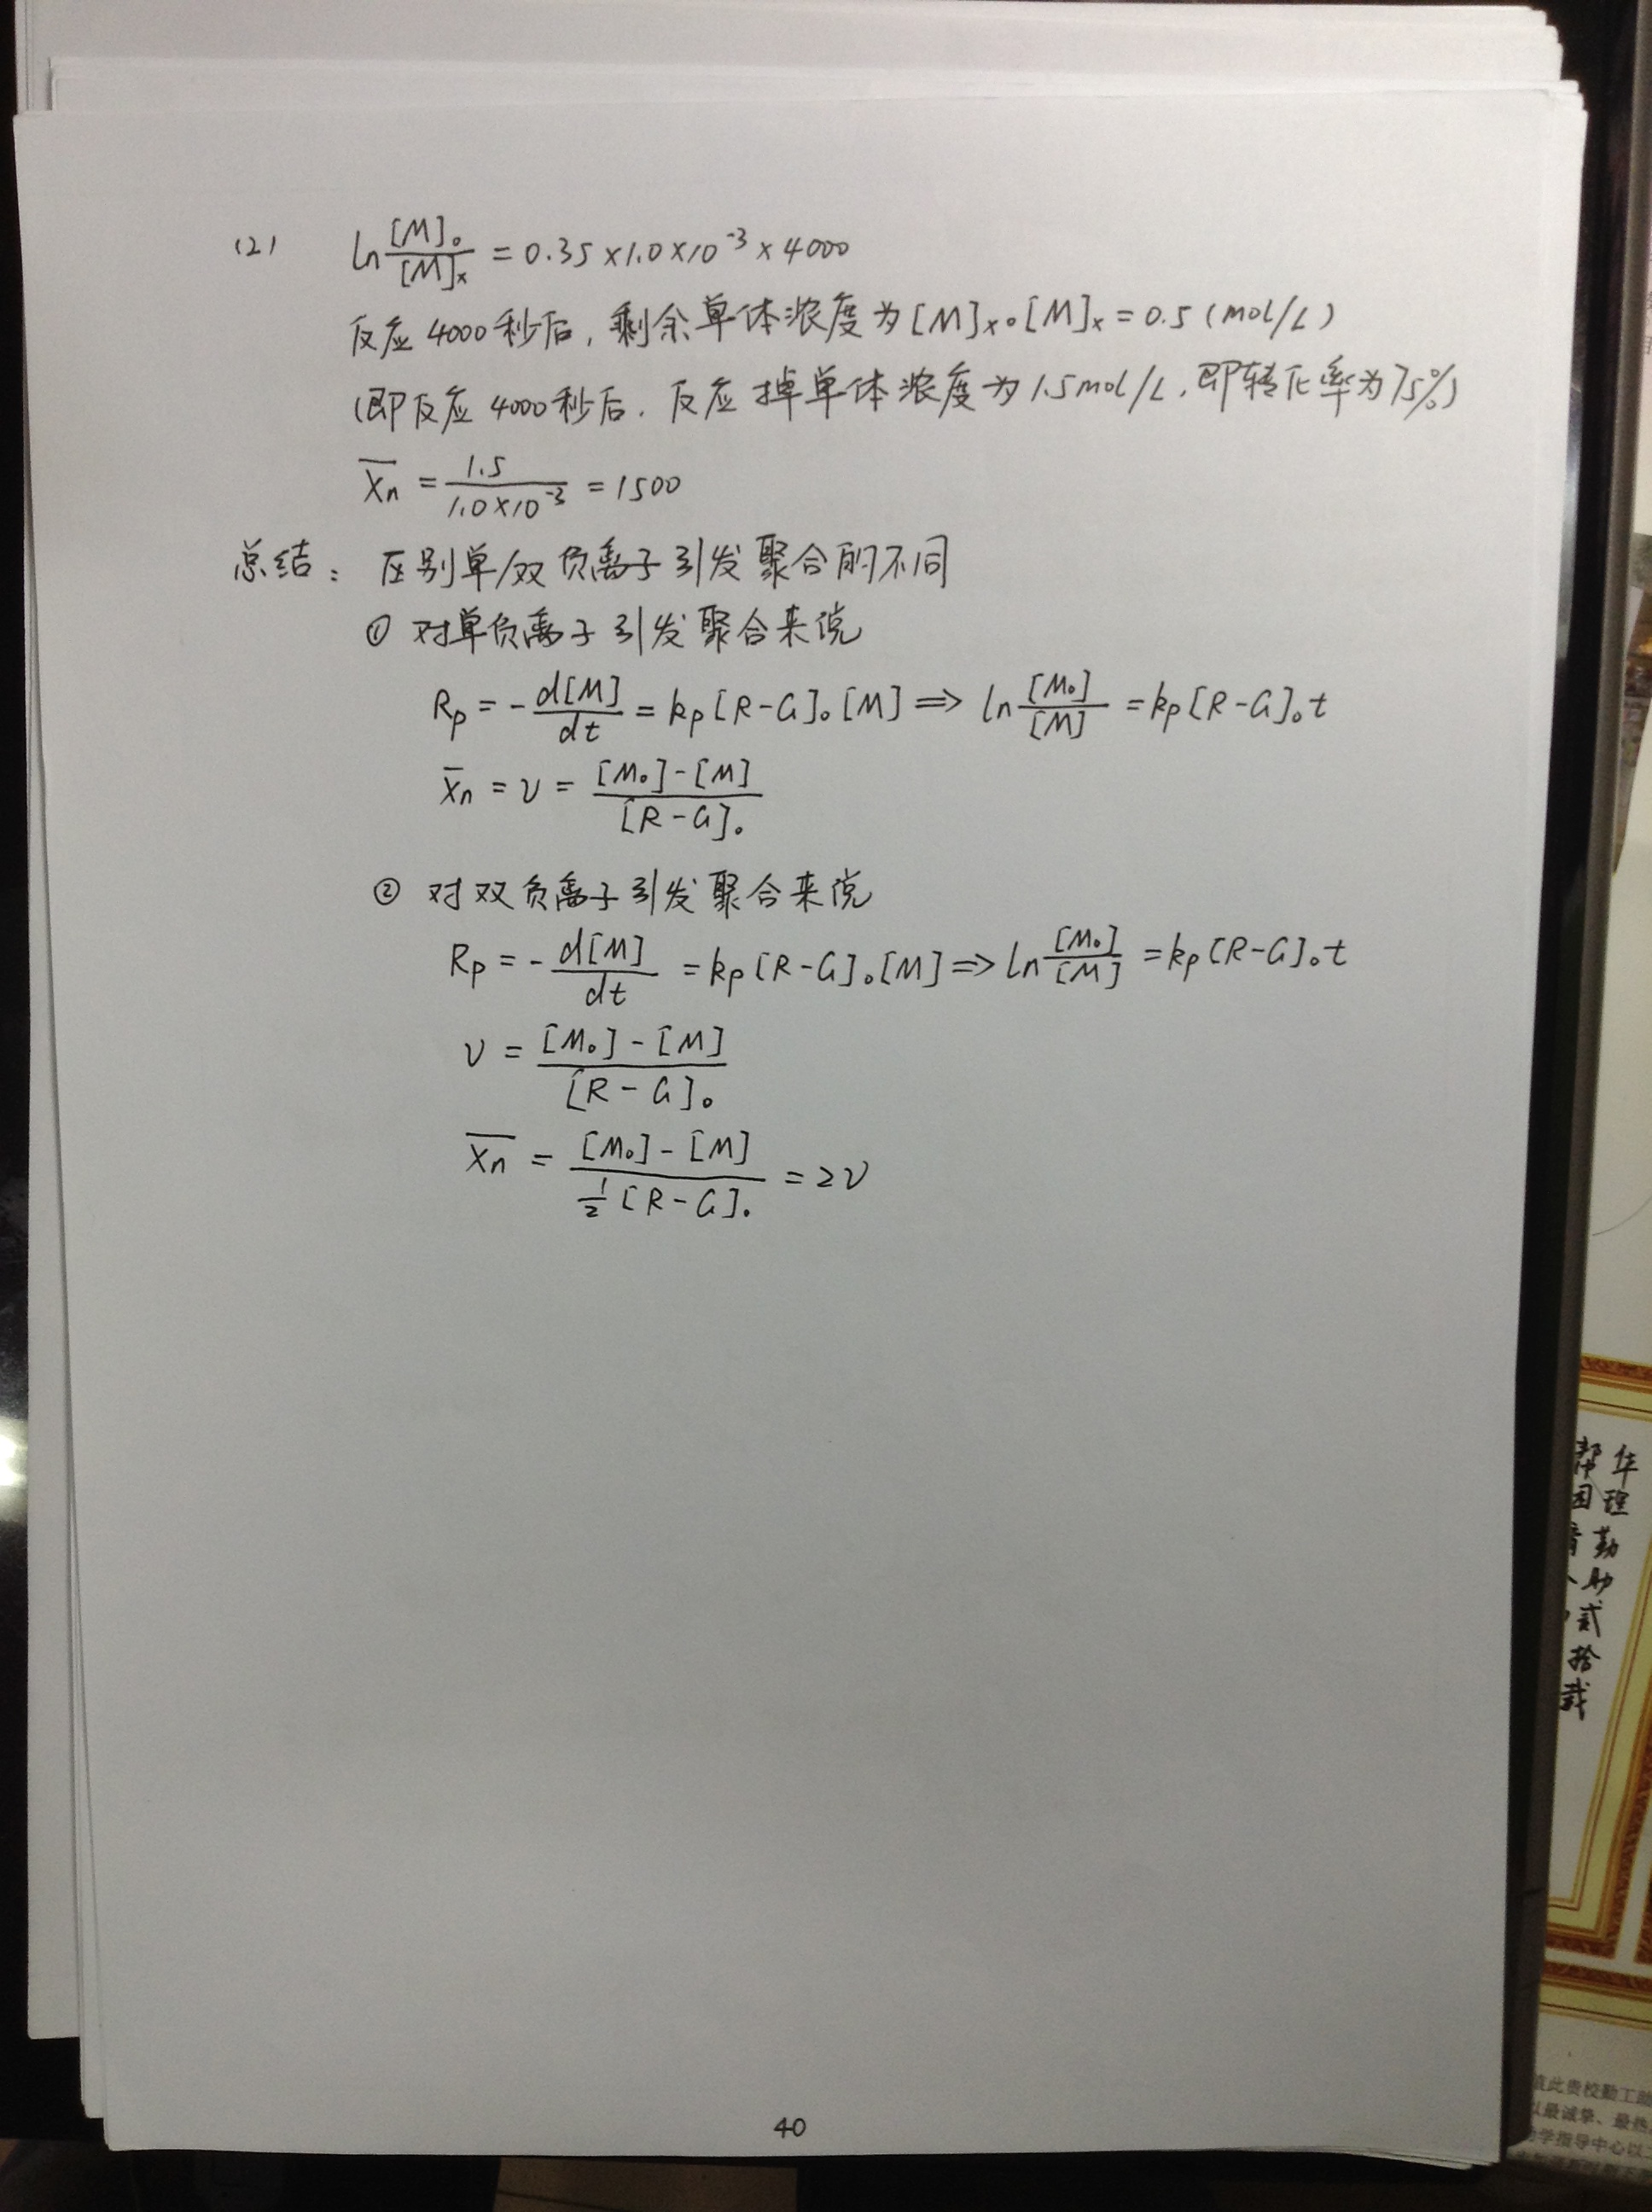 (2) ln [M]₀/[M]ₓ = 0.35×1.0×10⁻³×4000
反应4000秒后,剩余单体浓度为[M]ₓ。[M]ₓ=0.5(mol/L)
(即反应4000秒后.反应掉单体浓度为1.5mol/L,即转化率为75%)
X̄n = 1.5/1.0×10⁻³ = 1500
总结: 区别单/双负离子引发聚合的不同
① 对单负离子引发聚合来说
Rp = -d[M]/dt = kp[R-G]₀[M] ⇒ ln [M₀]/[M] = kp[R-G]₀t
X̄n = ν = [M₀]-[M]/[R-G]₀
② 对双负离子引发聚合来说
Rp = -d[M]/dt = kp[R-G]₀[M] ⇒ ln [M₀]/[M] = kp[R-G]₀t
ν = [M₀]-[M]/[R-G]₀
X̄n = [M₀]-[M]/½[R-G]₀ = 2ν
40
华理勤助贰拾载
帮困
值此贵校勤工助
以最诚挚、最热
学指导中心以